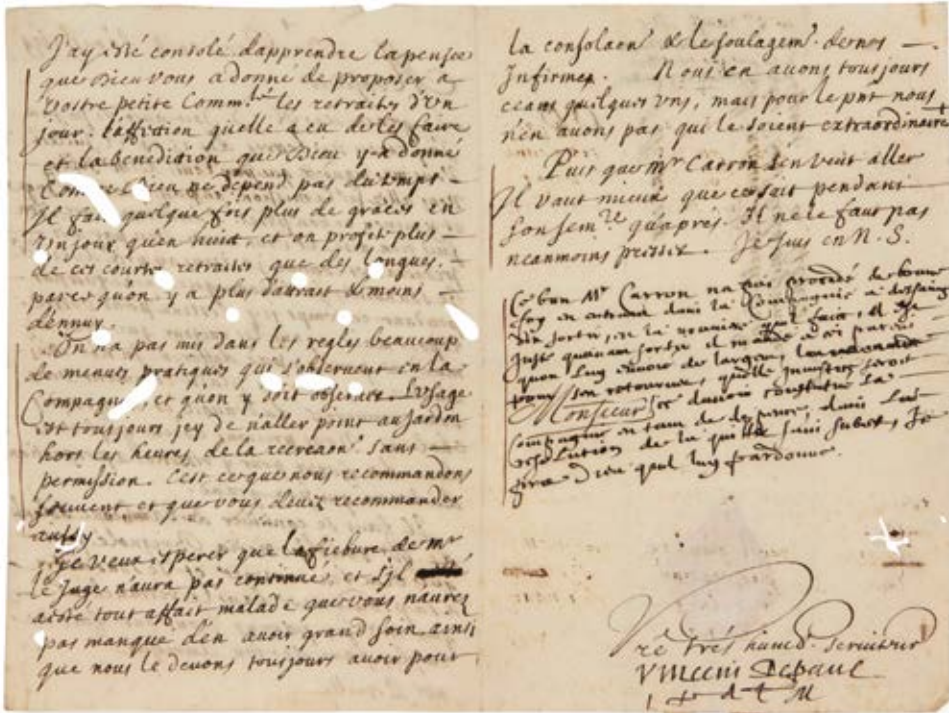 J'ay esté consolé d'apprendre la pensee
que Dieu vous a donné de proposer a
vostre petite Comm.té les retraites d'un
jour. l'affection quelle a eu de les faire
et la benediction que Dieu y a donné
Comme Dieu ne depend pas du temps
Il fait quelque fois plus de graces en
un jour qu'en huict, et on profite plus
de ces courtes retraites que des longues.
parce qu'on y a plus d'attrait & moins
d'ennuy.
On n'a pas mis dans les regles beaucoup
de menues pratiques qui s'observent en la
Compagnie, et qu'on y doit observer. L'usage
est tousjours icy de n'aller point au Jardin
hors les heures de la recreaon sans
permission. C'est ce que nous recommandons
souvent et que vous devez recommander
aussy
Je veux esperer que la fiebure de mr
le Juge n'aura pas continué, et s'il
a esté tout affait malade que vous n'aurez
pas manqué d'en avoir grand soin ainsi
que nous le devons tousjours avoir pour
la consolaon & le soulagem.t de nos
Infirmes. Nous en avons tousjours
ceans quelques uns, mais pour le pnt nous
n'en avons pas qui le soient extraordinairemt
Puis que mr Carron s'en veut aller
Il vaut mieux que ce soit pendant
son sem.re qu'apres. Il ne le faut pas
neanmoins presser. Je suis en N. S.
Ce bon Mr Carron na pas procedé de bonne
foy en entrant dans la Compagnie a dessain
den sortir, en la
Juste quavant sortir il mande a ses parens
quon luy envoie de largent
pour sen retourner, quelle injustice seroit
Monsieur
compagnie en tant de
resolution de la quitter sans subiet, Je
prie Dieu quil luy pardonne.
Vre tres humb. serviteur
Vincent Depaul